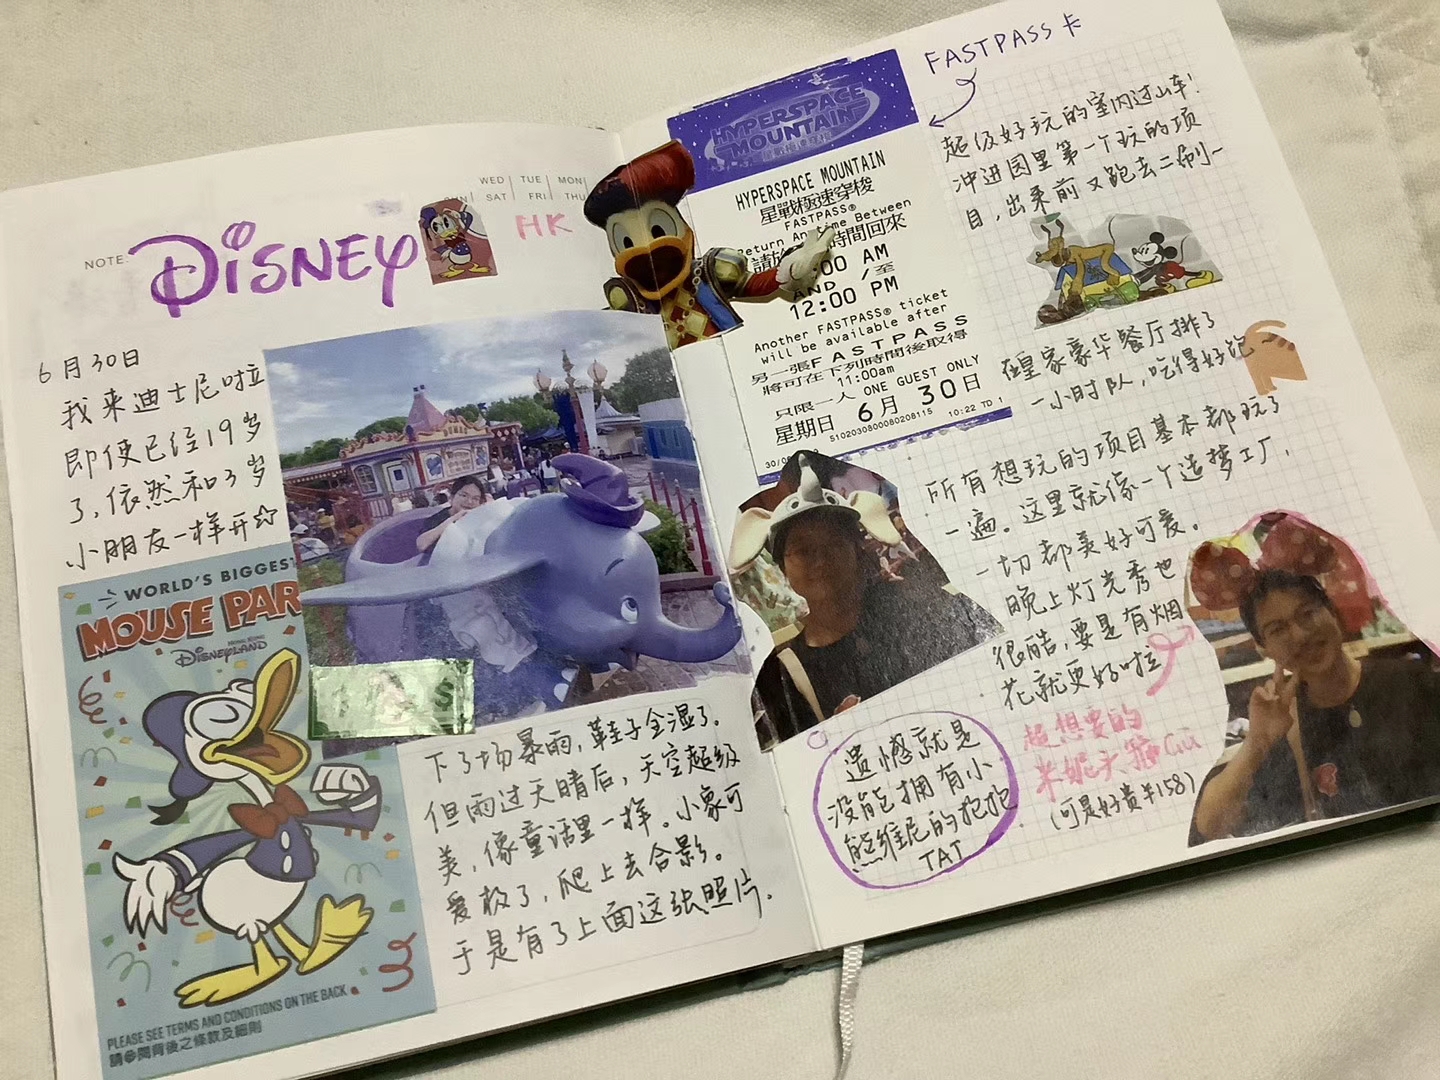 NOTE:
DiSNEY
HK
WED TUE MON
SAT FRI THU
6月30日
我来迪士尼啦
即使已经19岁
了,依然和3岁
小朋友一样开☆
WORLD'S BIGGEST
MOUSE PAR
HONG KONG
DISNEYLAND
PLEASE SEE TERMS AND CONDITIONS ON THE BACK
請參閱背後之條款及細則
下了场暴雨,鞋子全湿了。
但雨过天晴后,天空超级
美,像童话里一样。小象可
爱极了,爬上去合影。
于是有了上面这张照片.
FASTPASS卡
HYPERSPACE
MOUNTAIN
星戰極速穿梭
HYPERSPACE MOUNTAIN
星戰極速穿梭
FASTPASS®
Return Anytime Between
時間回來
:00 AM
AND /至
12:00 PM
Another FASTPASS® ticket
will be available after
另一張FASTPASS
將可在下列時間後取得
11:00am
只限一人 ONE GUEST ONLY
星期日 6月 30日
5102030800080208115 10:22 TD 1
30/06
超级好玩的室内过山车!
冲进园里第一个玩的项
目,出来前又跑去二刷~
在皇家豪华餐厅排了
一小时队,吃得好饱~
所有想玩的项目基本都玩了
一遍。这里就像一个造梦工厂,
一切都美好可爱。
晚上灯光秀也
很酷,要是有烟
花就更好啦
遗憾就是
没能拥有小
熊维尼的抱抱
TAT
超想要的
米妮头箍
(可是好贵¥158)